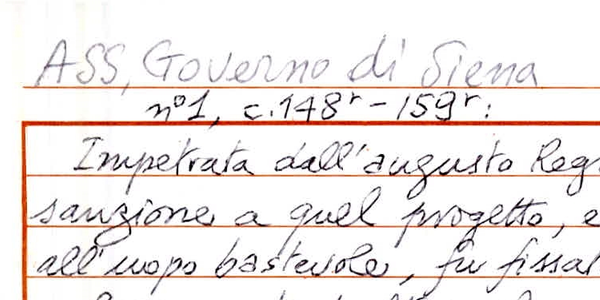 ASS, Governo di Siena
n°1, c.148r-159r:
Impetrata dall'augusto Reg
sanzione a quel progetto, e
all'uopo bastevole, fu fissat